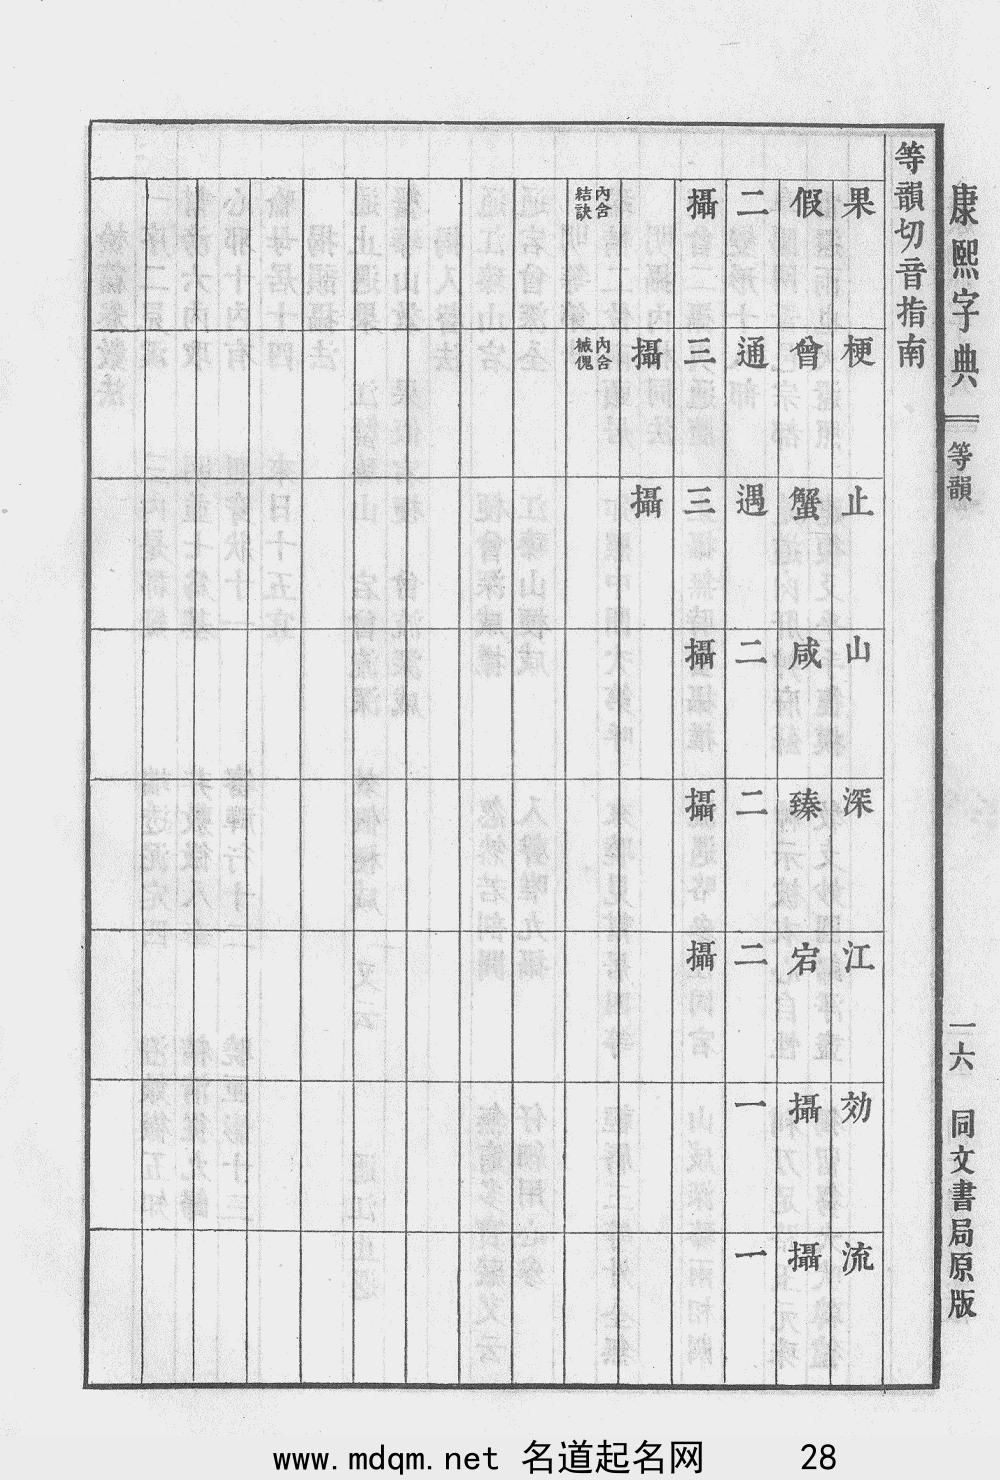 康熙字典
等韻
一六
同文書局原版
等韻切音指南
果假二攝
內含結訣
梗曾通三攝
內含械傀
止蟹遇三攝
山咸二攝
深臻二攝
江宕二攝
効攝一
流攝一
www.mdqm.net 名道起名网 28